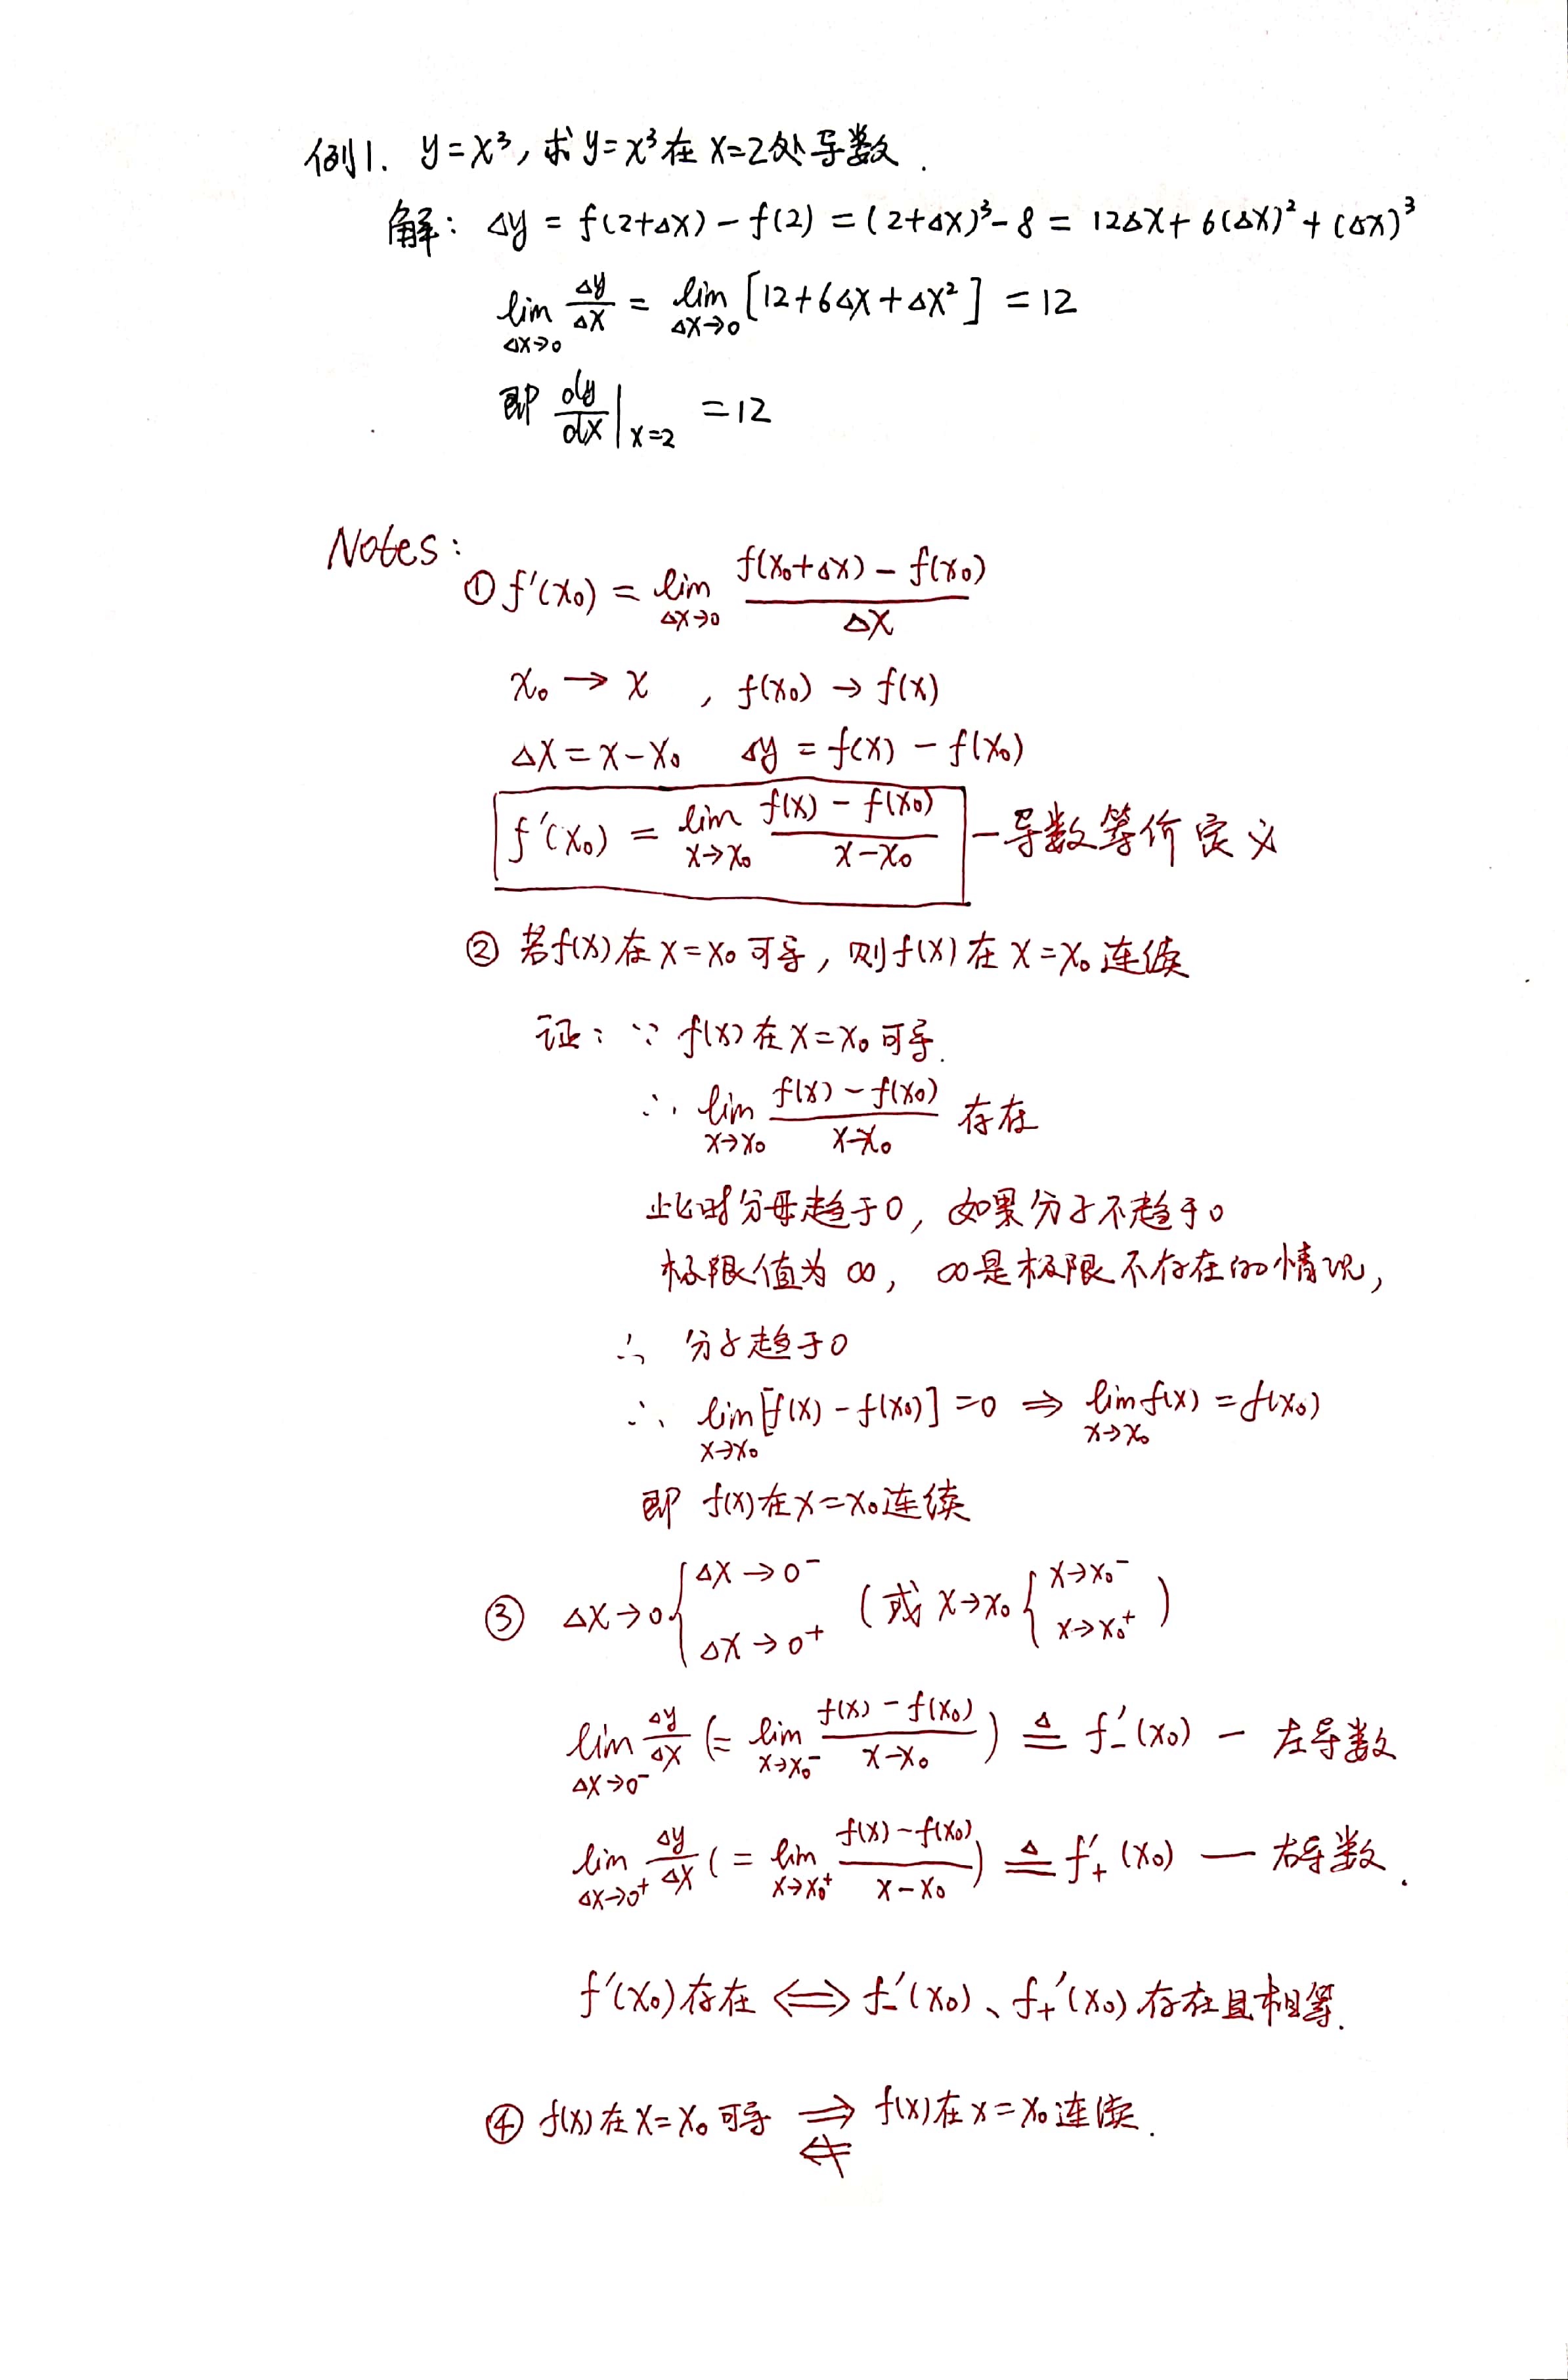 例1. y=x³,求y=x³在x=2处导数.
解: Δy = f(2+Δx) - f(2) = (2+Δx)³ - 8 = 12Δx + 6(Δx)² + (Δx)³
lim_{Δx→0} Δy/Δx = lim_{Δx→0} [12+6Δx+Δx²] = 12
即 dy/dx|_{x=2} = 12
Notes:
① f'(x₀) = lim_{Δx→0} (f(x₀+Δx) - f(x₀))/Δx
x₀ → x , f(x₀) → f(x)
Δx = x-x₀ Δy = f(x) - f(x₀)
f'(x₀) = lim_{x→x₀} (f(x) - f(x₀))/(x-x₀) —导数等价定义
② 若f(x)在x=x₀可导,则f(x)在x=x₀连续
证: ∵ f(x)在x=x₀可导.
∴ lim_{x→x₀} (f(x) - f(x₀))/(x-x₀) 存在
此时分母趋于0, 如果分子不趋于0
极限值为∞, ∞是极限不存在的情况,
∴ 分子趋于0
∴ lim_{x→x₀} [f(x) - f(x₀)] = 0 ⇒ lim_{x→x₀} f(x) = f(x₀)
即 f(x)在x=x₀连续
③ Δx→0 { Δx→0⁻ Δx→0⁺ (或 x→x₀ { x→x₀⁻ x→x₀⁺ )
lim_{Δx→0⁻} Δy/Δx (= lim_{x→x₀⁻} (f(x) - f(x₀))/(x-x₀)) ≜ f₋'(x₀) — 左导数
lim_{Δx→0⁺} Δy/Δx (= lim_{x→x₀⁺} (f(x) - f(x₀))/(x-x₀)) ≜ f₊'(x₀) — 右导数.
f'(x₀)存在 ⟺ f₋'(x₀)、f₊'(x₀)存在且相等.
④ f(x)在x=x₀可导 ⇒ ⇍ f(x)在x=x₀连续.